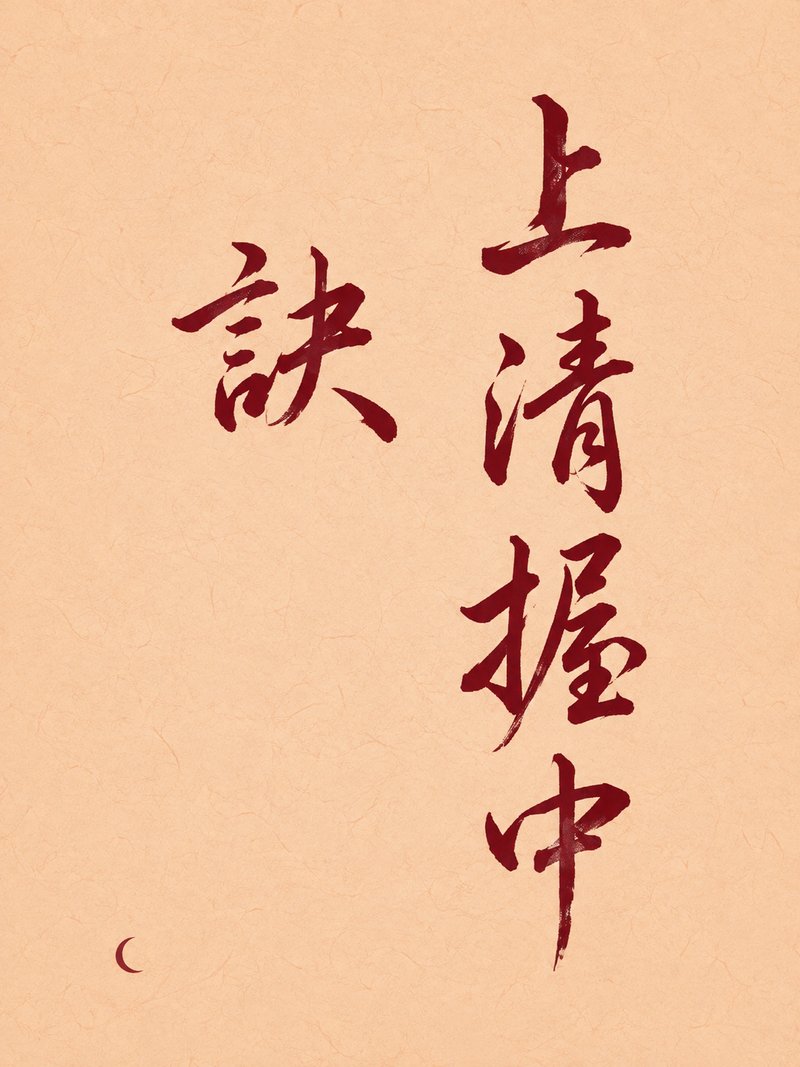 上清握中
訣